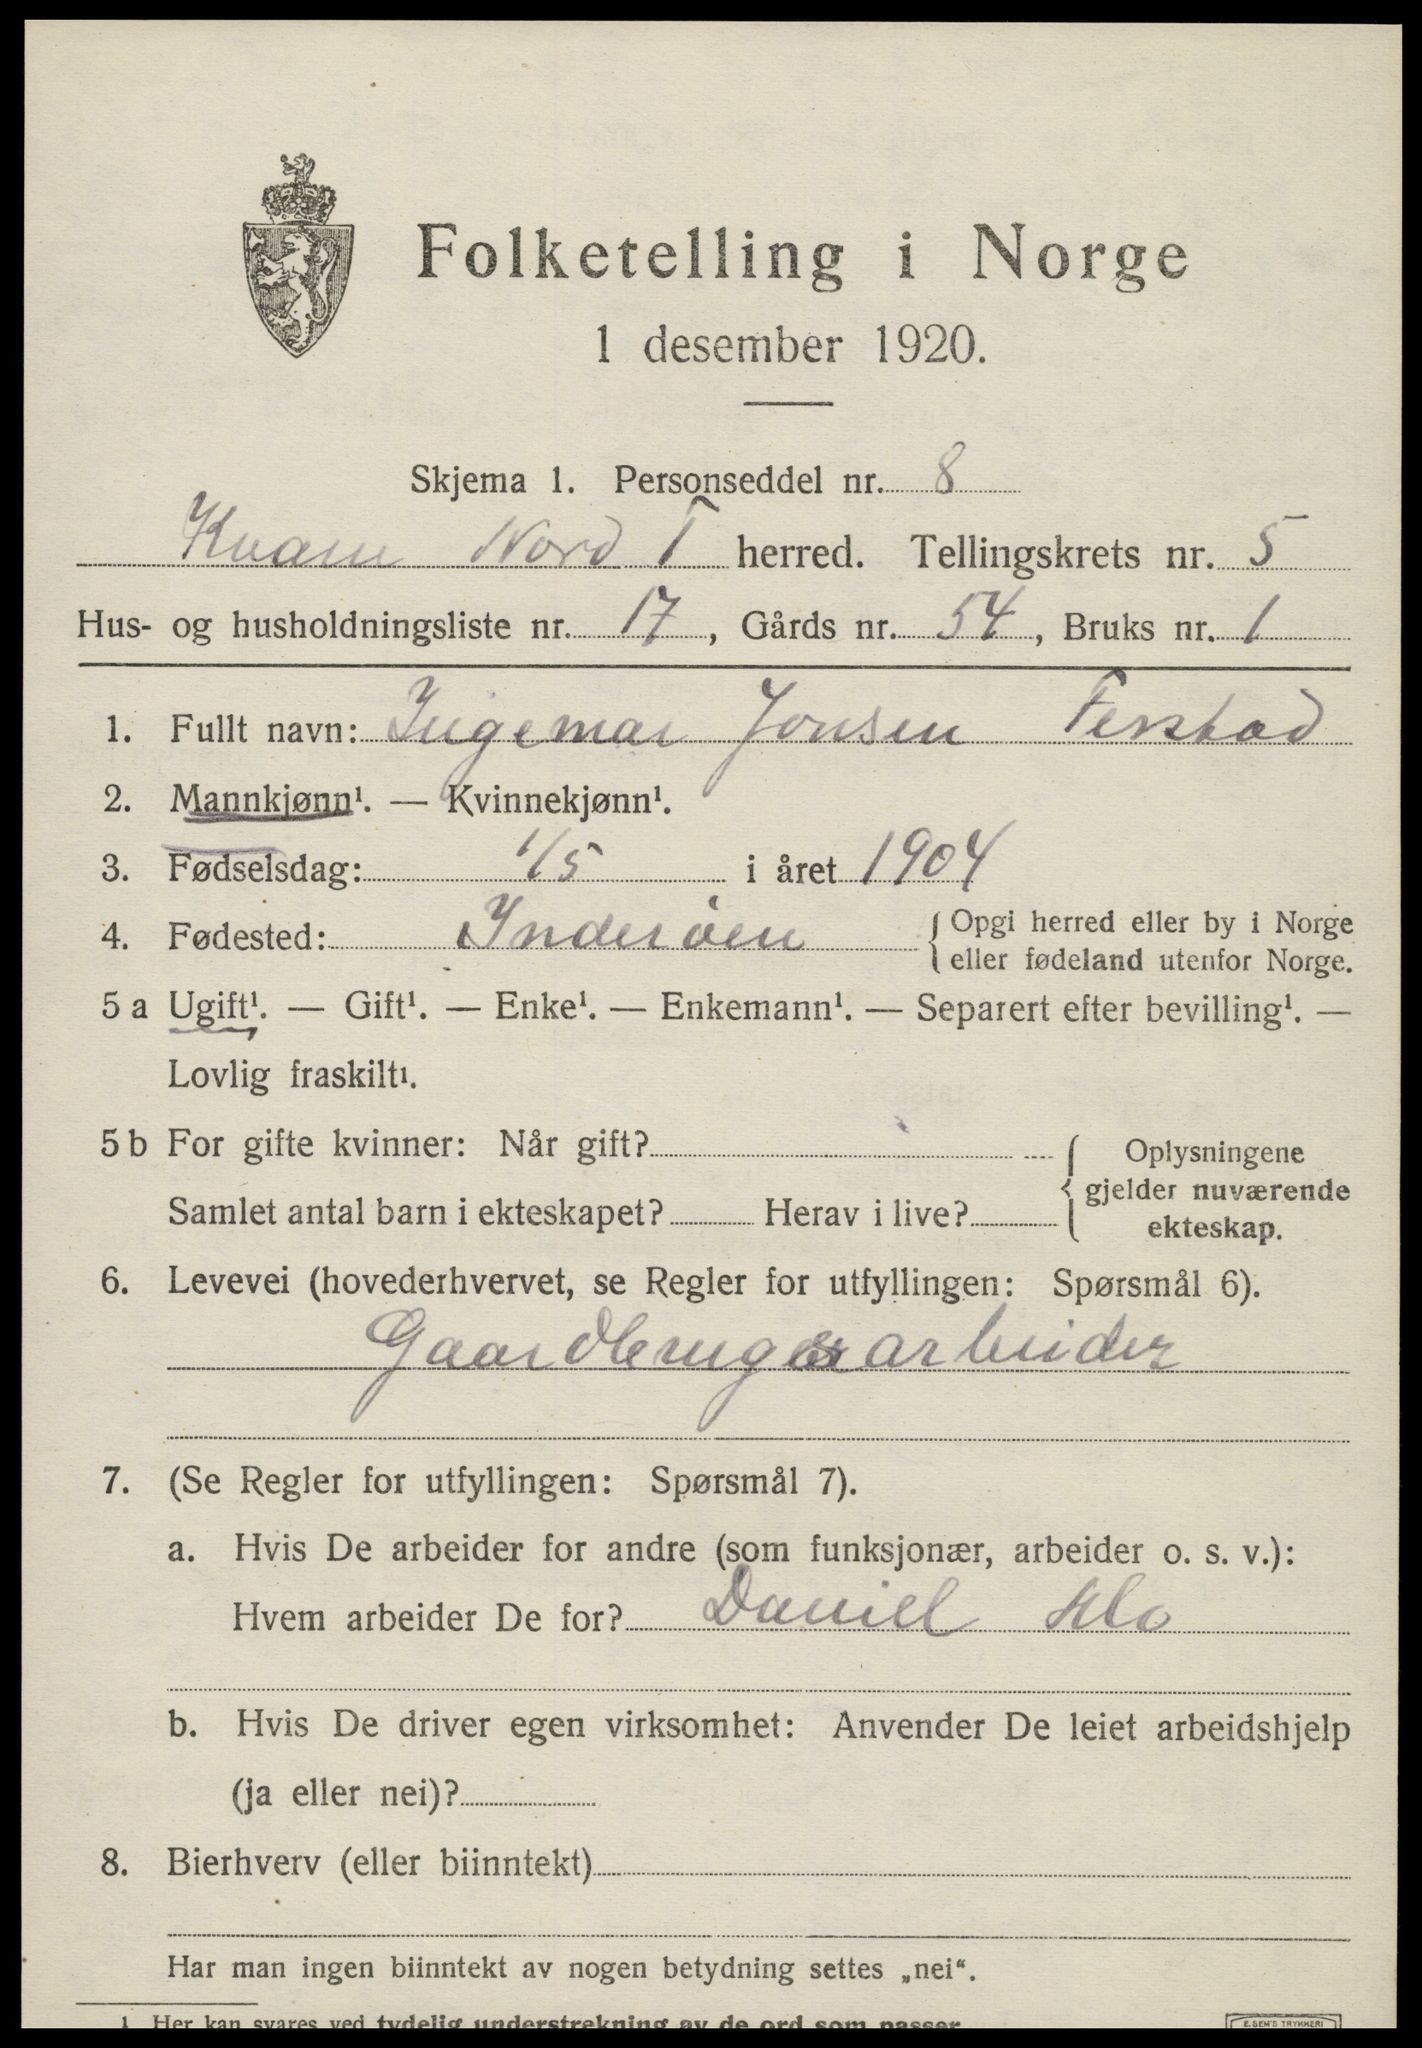 Folketelling i Norge
1 desember 1920.
Skjema 1. Personseddel nr. 8
Kvam Nord T herred. Tellingskrets nr. 5
Hus- og husholdningsliste nr. 17, Gårds nr. 54, Bruks nr. 1
1. Fullt navn: Ingemar Jonsen Ferstad
2. Mannkjønn¹. — Kvinnekjønn¹.
3. Fødselsdag: 1/5 i året 1904
4. Fødested: Inderøen { Opgi herred eller by i Norge
eller fødeland utenfor Norge.
5 a Ugift¹. — Gift¹. — Enke¹. — Enkemann¹. — Separert efter bevilling¹. —
Lovlig fraskilt¹.
5 b For gifte kvinner: Når gift? { Oplysningene
gjelder nuværende
Samlet antal barn i ekteskapet? Herav i live?
ekteskap.
6. Levevei (hovederhvervet, se Regler for utfyllingen: Spørsmål 6).
Gaardbrugsarbeider
7. (Se Regler for utfyllingen: Spørsmål 7).
a. Hvis De arbeider for andre (som funksjonær, arbeider o. s. v.):
Hvem arbeider De for? Daniel Klo
b. Hvis De driver egen virksomhet: Anvender De leiet arbeidshjelp
(ja eller nei)?
8. Bierhverv (eller biinntekt)
Har man ingen biinntekt av nogen betydning settes „nei“.
1 Her kan svares ved tydelig understrekning av de ord som passer
E. SEM'S TRYKKERI